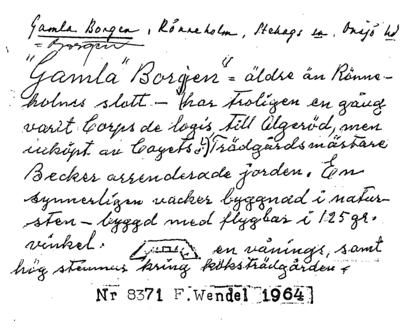 Gamla Borgen, Rönneholm, Stehags sn, Onsjö hd
= Borgen
"Gamla" Borgen" = äldre än Rönne-
holms slott - (har troligen en gång
varit Corps de logis till Ageröd, men
inköpt av Coyets.) Trädgårdsmästare
Becker arrenderade jorden. En
synnerligen vacker byggnad i natur-
sten - byggd med flyglar i 125 gr.
vinkel. en vånings, samt
hög stenmur kring köksträdgården.
Nr 8371 F. Wendel 1964